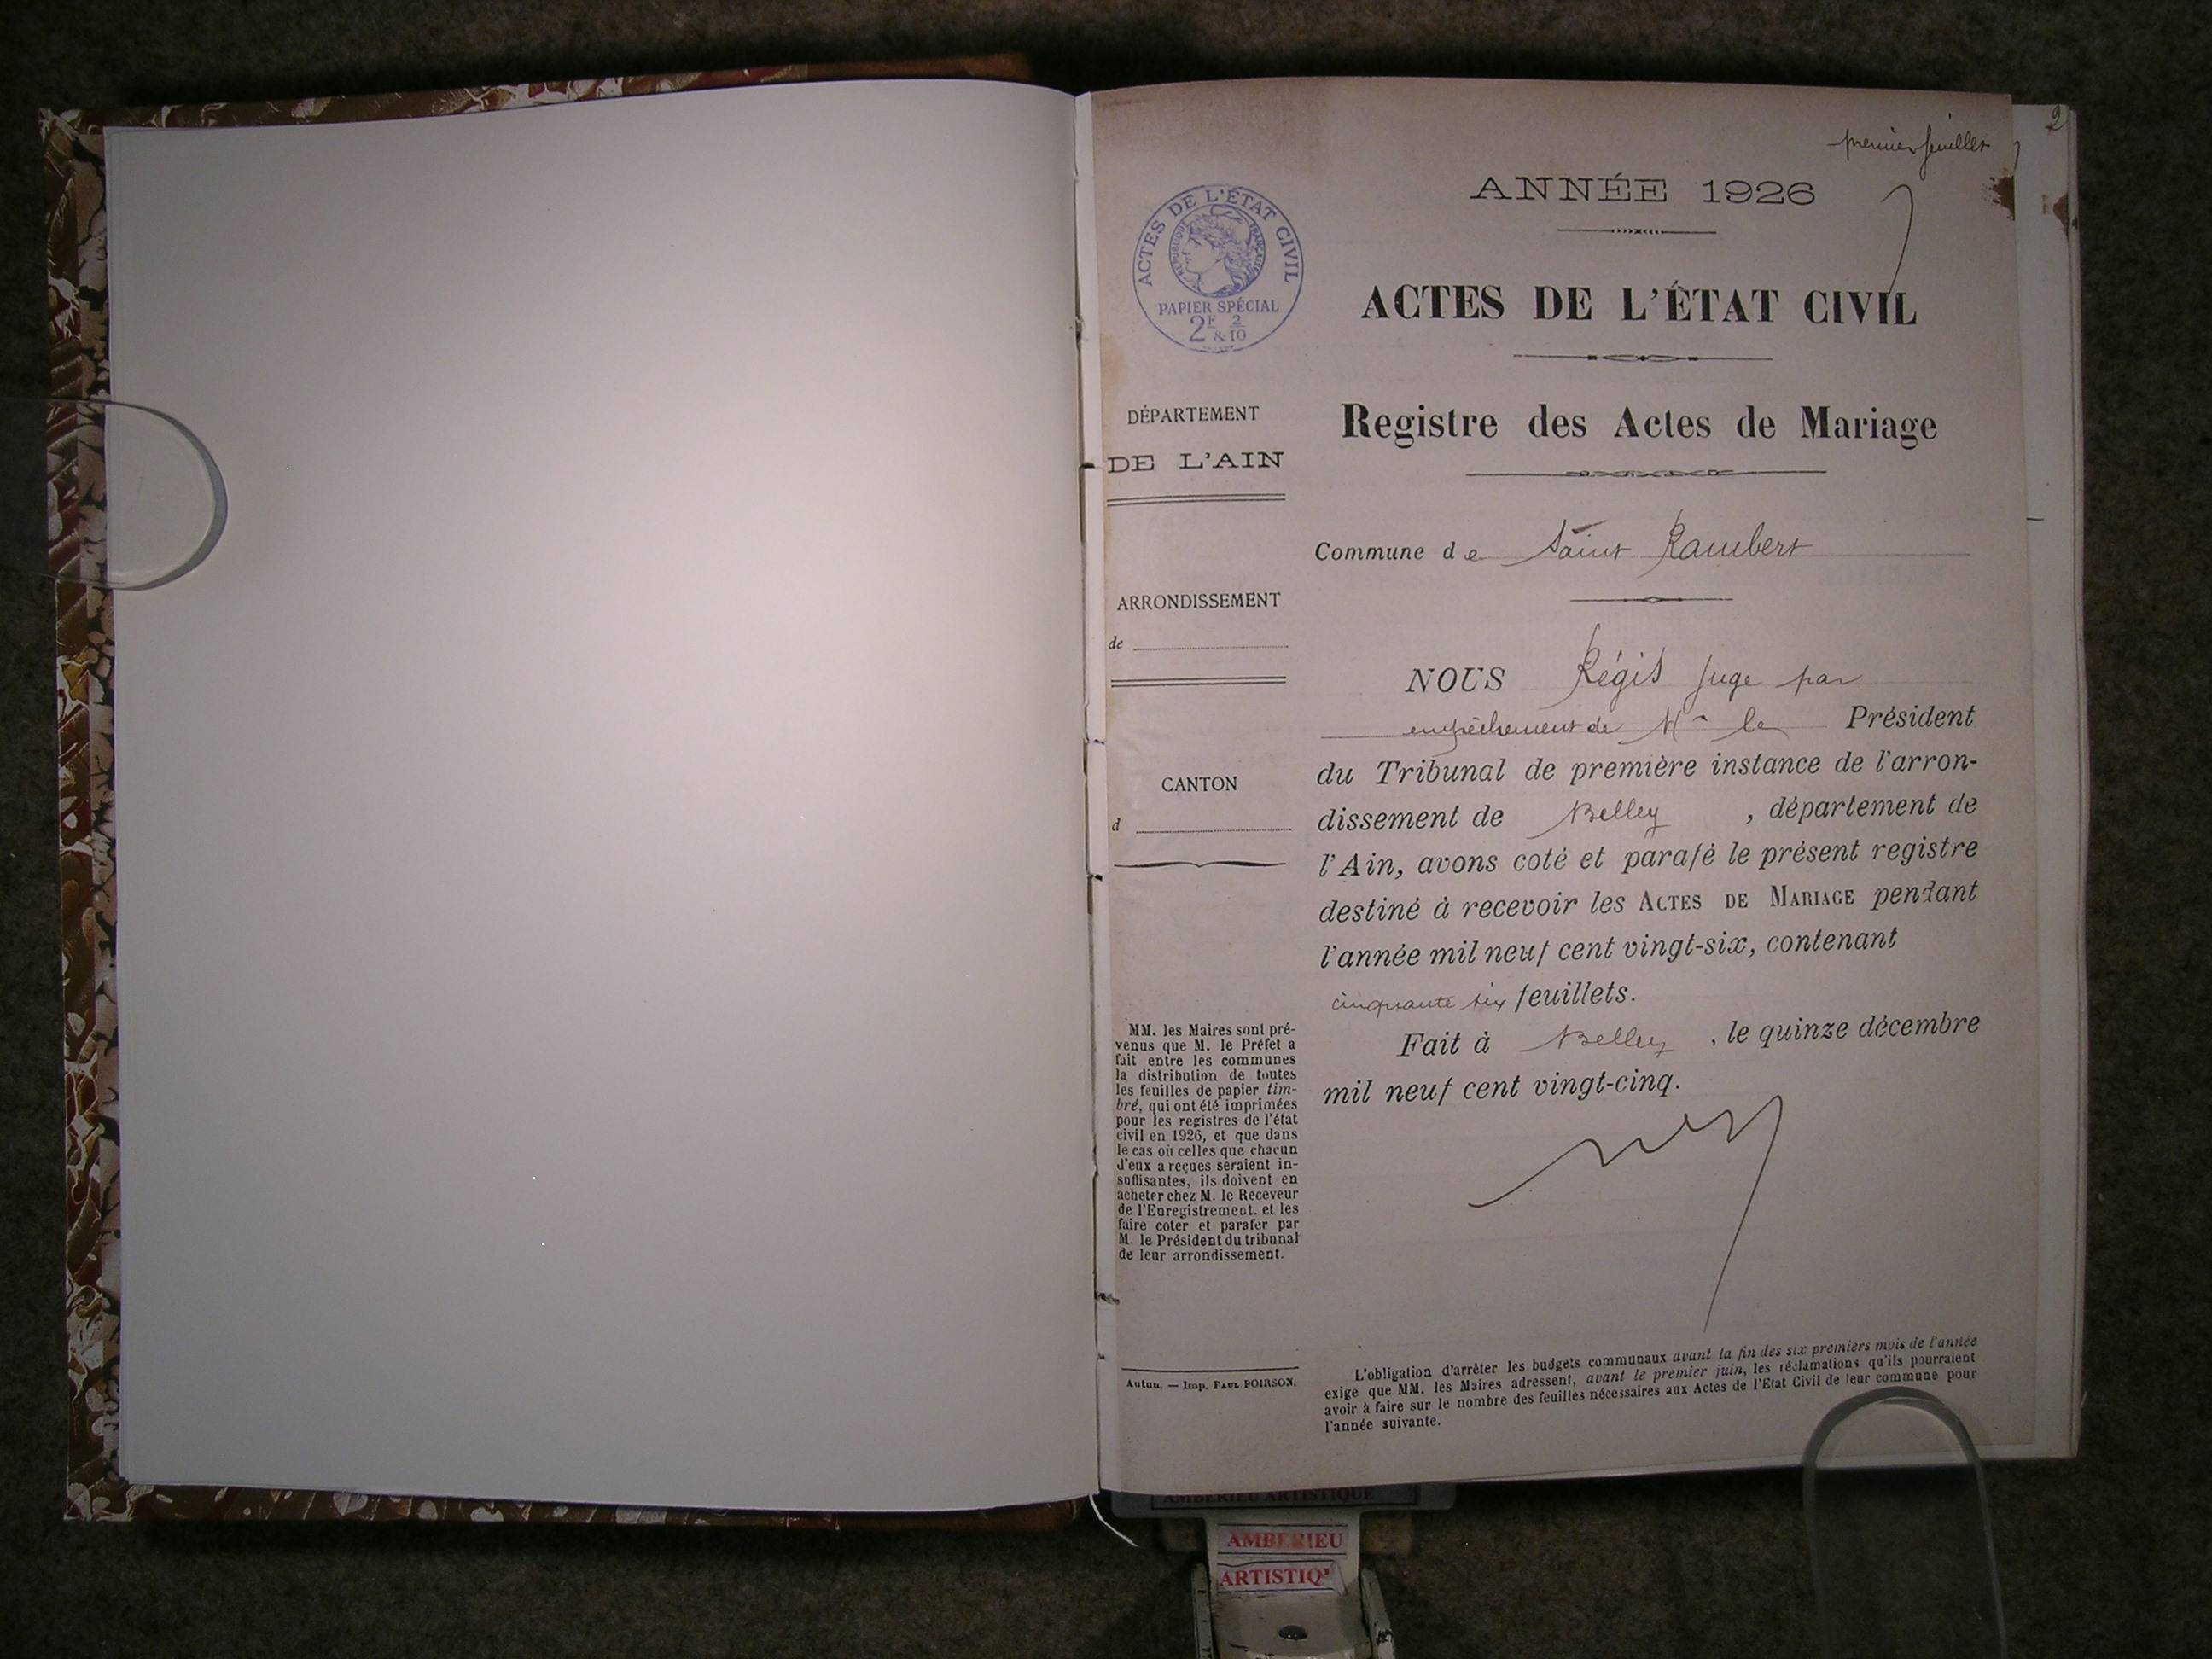 premier feuillet
2
ANNÉE 1926
ACTES DE L'ÉTAT CIVIL
RÉPUBLIQUE FRANÇAISE
PAPIER SPÉCIAL
2F & 2/10
ACTES DE L'ÉTAT CIVIL
Registre des Actes de Mariage
DÉPARTEMENT
DE L'AIN
ARRONDISSEMENT
de
CANTON
d
MM. les Maires sont pré-
venus que M. le Préfet a
fait entre les communes
la distribution de toutes
les feuilles de papier tim-
bré, qui ont été imprimées
pour les registres de l'état
civil en 1926, et que dans
le cas où celles que chacun
d'eux a reçues seraient in-
suffisantes, ils doivent en
acheter chez M. le Receveur
de l'Enregistrement. et les
faire coter et parafer par
M. le Président du tribunal
de leur arrondissement.
Autun. — Imp. PAUL POIRSON.
Commune de Saint Rambert
NOUS Régis Juge par
empêchement de Mr le Président
du Tribunal de première instance de l'arron-
dissement de Belley, département de
l'Ain, avons coté et parafé le présent registre
destiné à recevoir les ACTES DE MARIAGE pendant
l'année mil neuf cent vingt-six, contenant
cinquante six feuillets.
Fait à Belley, le quinze décembre
mil neuf cent vingt-cinq.
L'obligation d'arrêter les budgets communaux avant la fin des six premiers mois de l'année
exige que MM. les Maires adressent, avant le premier juin, les réclamations qu'ils pourraient
avoir à faire sur le nombre des feuilles nécessaires aux Actes de l'Etat Civil de leur commune pour
l'année suivante.
AMBERIEU ARTISTIQUE
AMBERIEU
ARTISTIQ